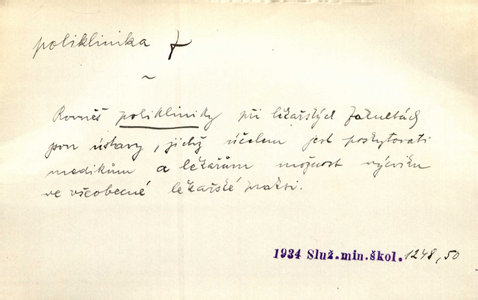 poliklinika f
~
Rovněž polikliniky při lékařských fakultách
jsou ústavy, jichž účelem jest poskytovati
medikům a lékařům možnost výcviku
ve všeobecné lékařské praksi.
1934 Služ.min.škol. 1248,50